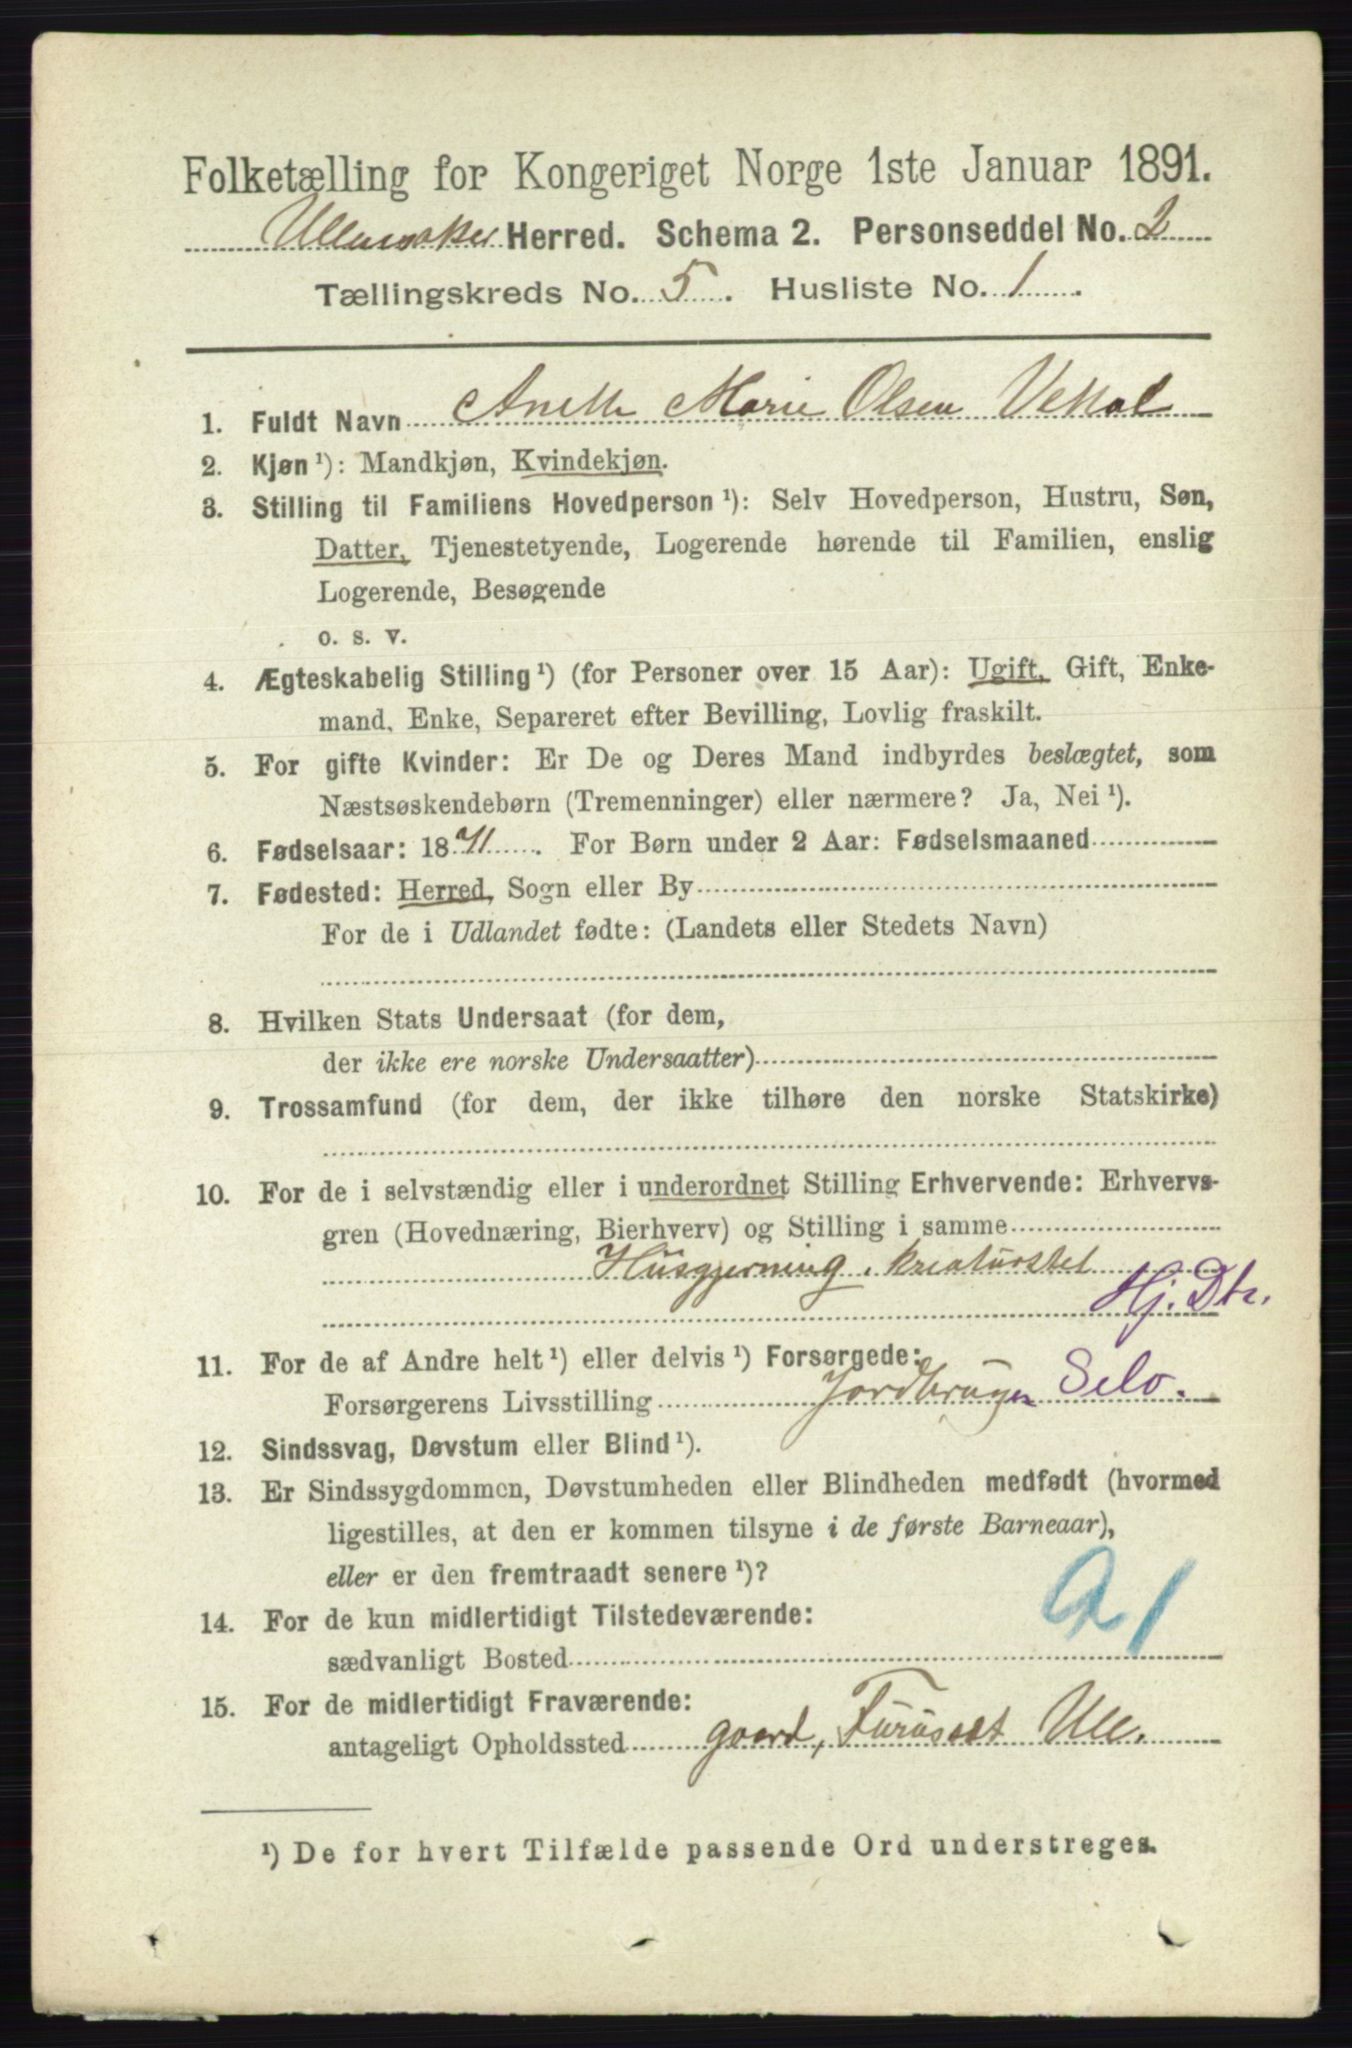 Folketælling for Kongeriget Norge 1ste Januar 1891.
Ullensaker Herred. Schema 2. Personseddel No. 2
Tællingskreds No. 5. Husliste No. 1.
1. Fuldt Navn Anette Marie Olsen
2. Kjøn ¹): Mandkjøn, Kvindekjøn.
3. Stilling til Familiens Hovedperson ¹): Selv Hovedperson, Hustru, Søn,
Datter, Tjenestetyende, Logerende hørende til Familien, enslig
Logerende, Besøgende
o. s. v.
4. Ægteskabelig Stilling ¹) (for Personer over 15 Aar): Ugift, Gift, Enke-
mand, Enke, Separeret efter Bevilling, Lovlig fraskilt.
5. For gifte Kvinder: Er De og Deres Mand indbyrdes beslægtet, som
Næstsøskendebørn (Tremenninger) eller nærmere? Ja, Nei ¹).
6. Fødselsaar: 1871. For Børn under 2 Aar: Fødselsmaaned
7. Fødested: Herred, Sogn eller By
For de i Udlandet fødte: (Landets eller Stedets Navn)
8. Hvilken Stats Undersaat (for dem,
der ikke ere norske Undersaatter)
9. Trossamfund (for dem, der ikke tilhøre den norske Statskirke)
10. For de i selvstændig eller i underordnet Stilling Erhvervende: Erhvervs-
gren (Hovednæring, Bierhverv) og Stilling i samme
Husgjerning, kreaturstel
Hj. Dtr.
11. For de af Andre helt ¹) eller delvis ¹) Forsørgede:
Forsørgerens Livsstilling Jordbruger Selv.
12. Sindssvag, Døvstum eller Blind ¹).
13. Er Sindssygdommen, Døvstumheden eller Blindheden medfødt (hvormed
ligestilles, at den er kommen tilsyne i de første Barneaar),
eller er den fremtraadt senere ¹)?
14. For de kun midlertidigt Tilstedeværende:
sædvanligt Bosted
15. For de midlertidigt Fraværende:
antageligt Opholdssted gaard, Furuset Ull.
¹) De for hvert Tilfælde passende Ord understreges.